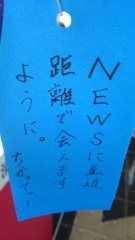 NEWSに至近
距離で会えます
ように。